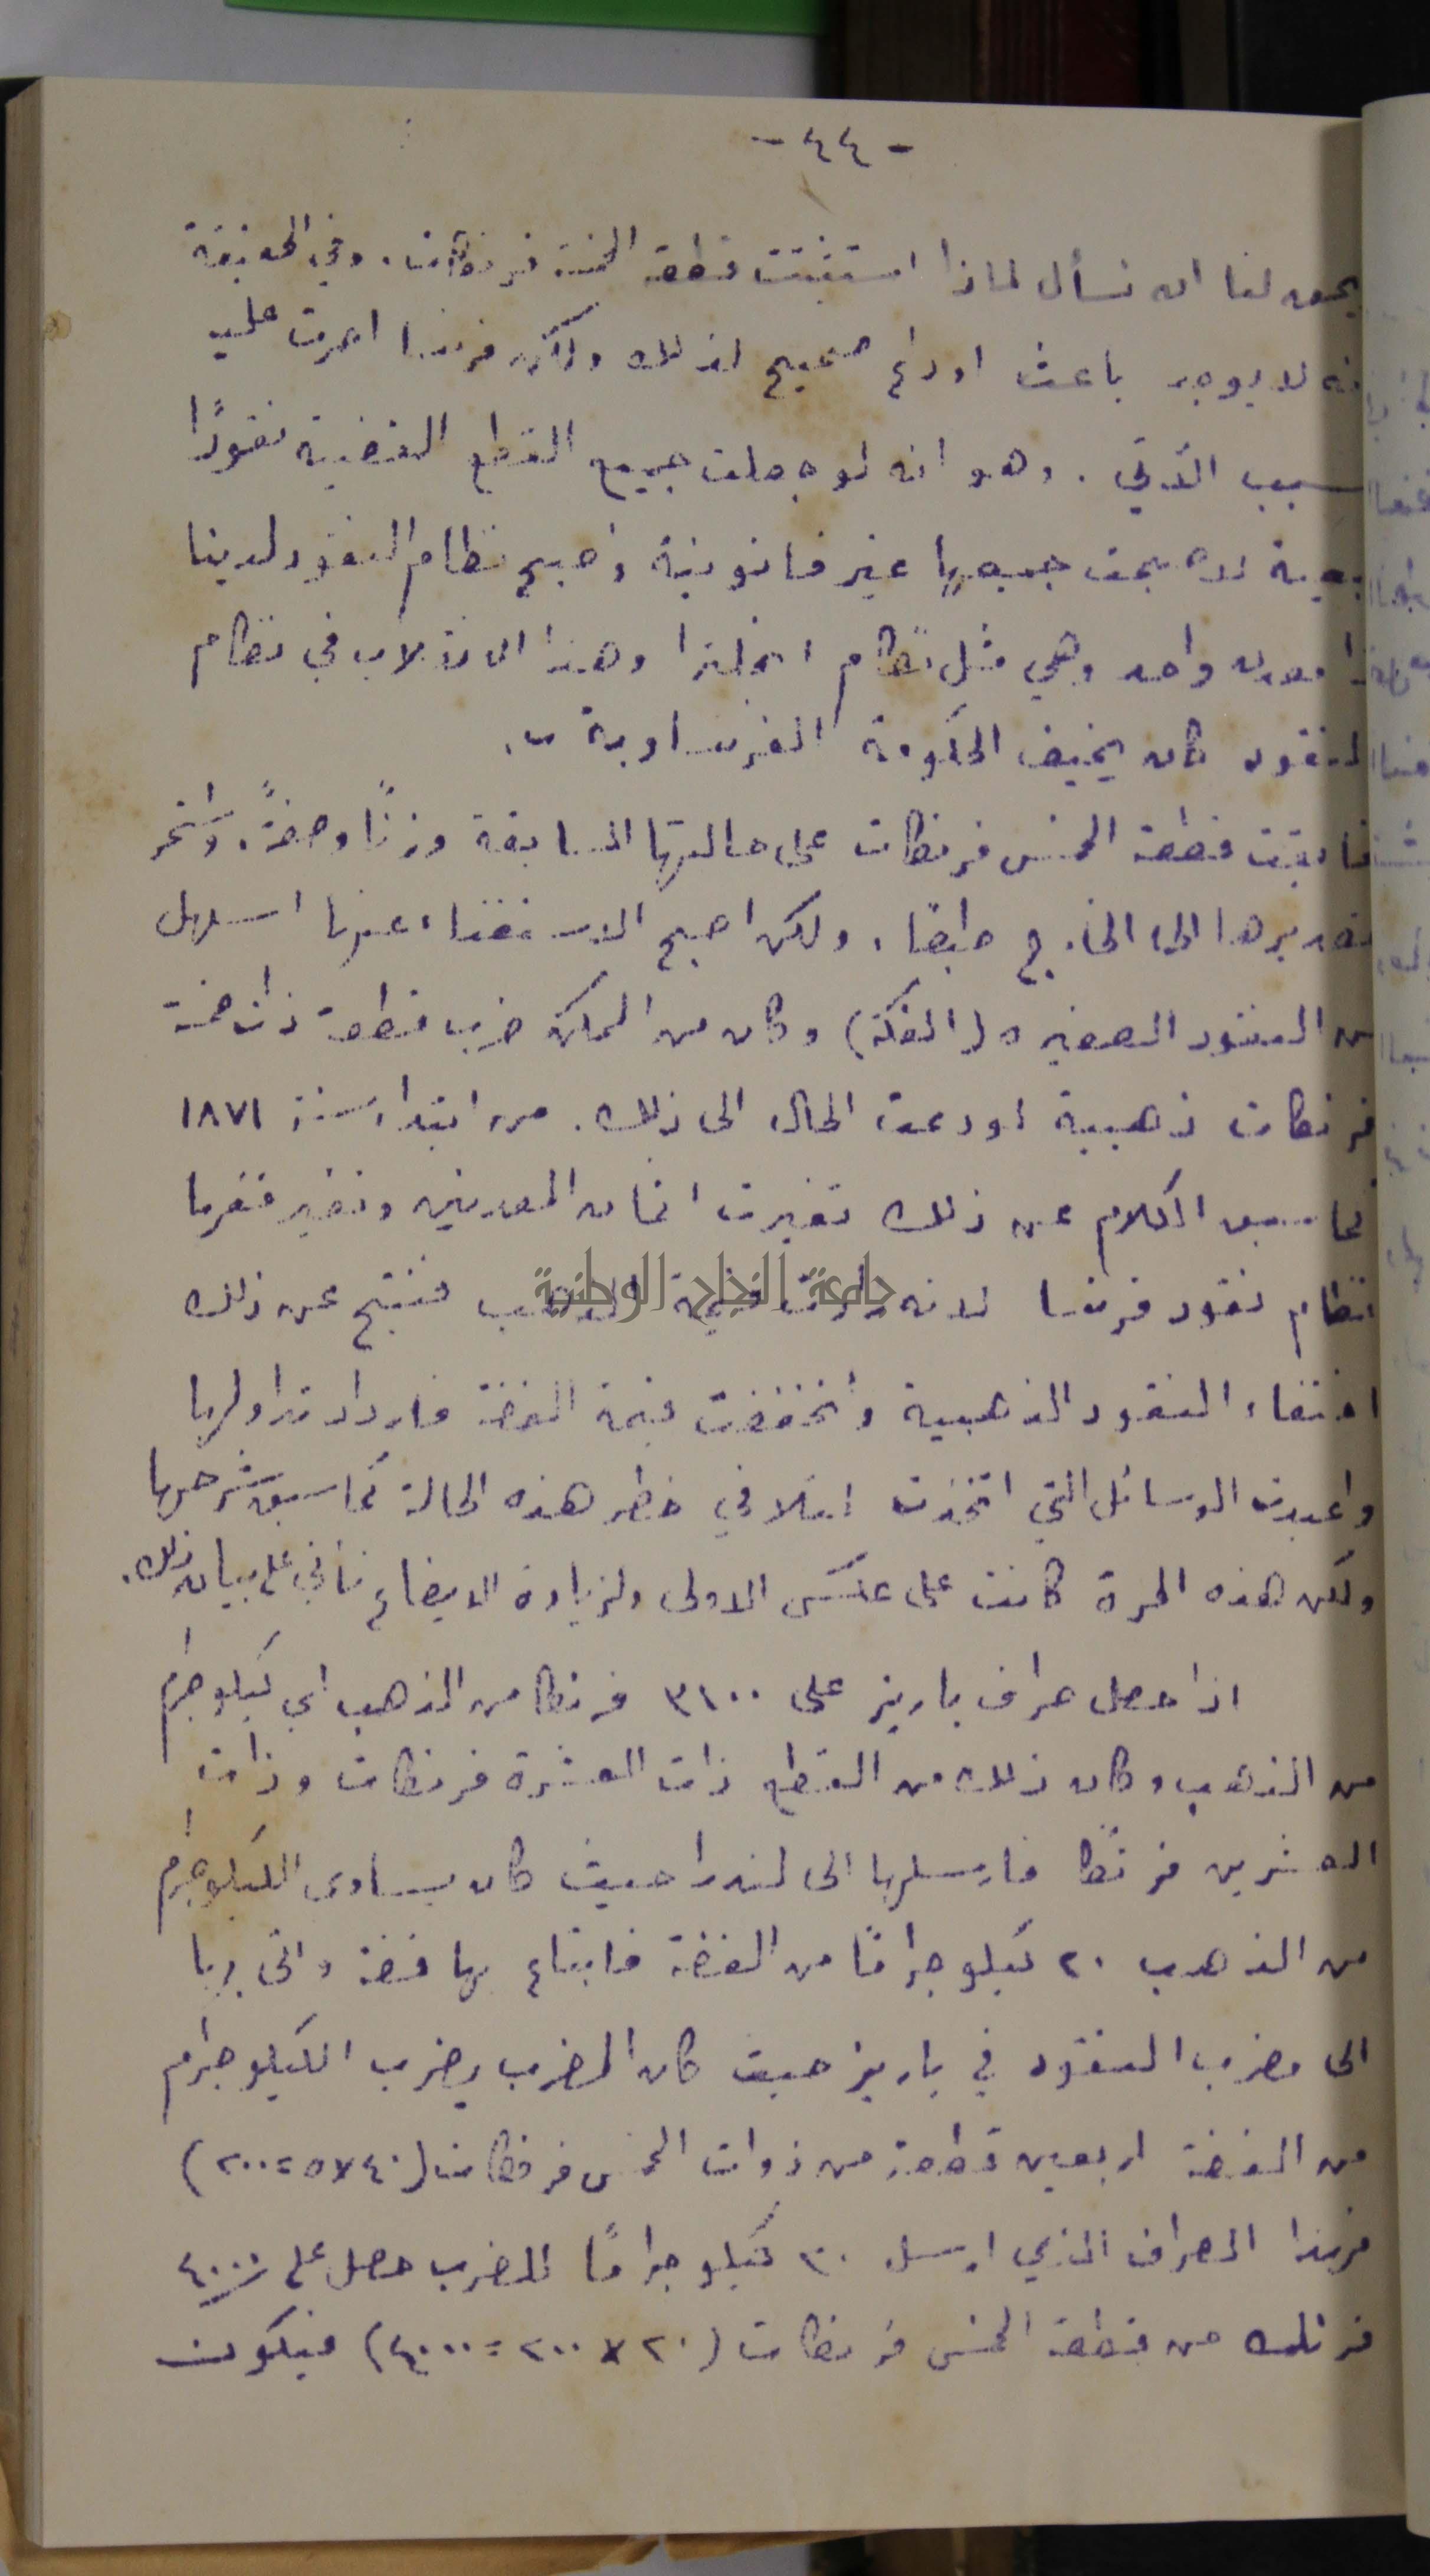 - ٤٤ -
يحق لنا ان نسأل لماذا استثنت قطعة الخمسة فرنكات. وفي الحقيقة
انه لا يوجد باعث او داع صحيح لذلك ولكن فرنسا اصرت عليه
للسبب الآتي. وهو انه لو جعلت جميع القطع الفضية نقودًا
لاصبحت جميعها غير قانونية واصبح نظام النقود لدينا
ذا معدن واحد وهي مثل نظام انجلترا وهذا الانقلاب في نظام
النقود كان يخيف الحكومة الفرنساوية
فابقت قطعة الخمس فرنكات على حالتها السابقة وزنًا وصفةً. واستمر
تصديرها الى الخارج طبقا. ولكن اصبح الاستغناء عنها اسهل
من النقود الصغيره (الفكة) وكان من الممكن ضرب قطعة ذات خمسة
فرنكات ذهبية لو دعت الحال الى ذلك. من ابتداء سنة ١٨٧١
كما سبق الكلام عن ذلك تغيرت اثمان المعدنين وتغير
نظام نقود فرنسا لانه زادت قيمة الذهب فنتج عن ذلك
اختفاء النقود الذهبية وانخفضت قيمة الفضة فازداد تداولها
واعيدت الوسائل التي اتخذت لتلافي خطر هذه الحالة كما سبق شرحها
ولكن هذه المرة كانت على عكس الاولى ولزيادة الايضاح نأتي على بيان ذلك.
اذا حصل صراف باريز على ٣١٠٠ فرنكا من الذهب اي كيلوجرام
من الذهب وكان ذلك من القطع ذات العشرة فرنكات وذات
العشرين فرنكا فارسلها الى لندرا حيث كان يساوى الكيلوجرام
من الذهب ٢٠ كيلوجرامًا من الفضة فابتاع بها فضة واتى بها
الى مضرب النقود في باريز حيث كان المضرب يضرب الكيلوجرام
من الفضة اربعين قطعة من ذوات الخمس فرنكات (٤٠×٥=٢٠٠)
فهذا الصراف الذي ارسل ٢٠ كيلوجرامًا للمضرب حصل على ٤٠٠٠
فرنك من قطعة الخمس فرنكات (٢٠×٢٠٠=٤٠٠٠) فيكون
جامعة النجاح الوطنية